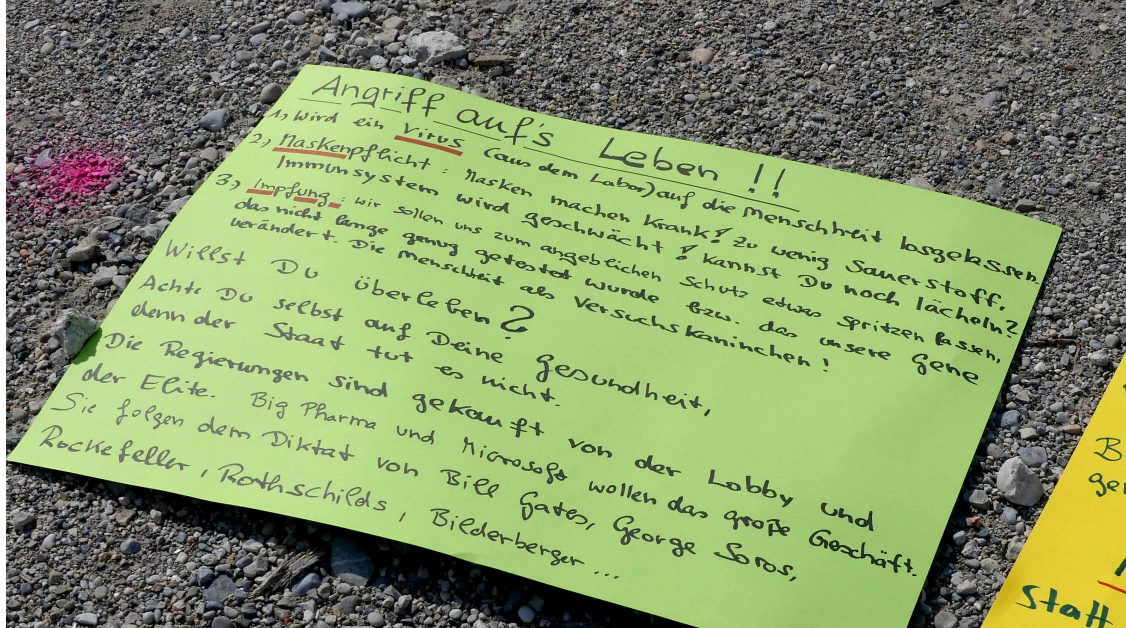 Angriff auf's Leben !!
1.) Wird ein Virus (aus dem Labor) auf die Menschheit losgelassen.
2.) Maskenpflicht : Masken machen krank! Zu wenig Sauerstoff,
Immunsystem wird geschwächt ! Kannst Du noch lächeln?
3.) Impfung : wir sollen uns zum angeblichen Schutz etwas spritzen lassen,
das nicht lange genug getestet wurde bzw. das unsere Gene
verändert. Die Menschheit als Versuchskaninchen !
Willst Du überleben ?
Achte Du selbst auf Deine Gesundheit,
denn der Staat tut es nicht.
Die Regierungen sind gekauft von der Lobby und
der Elite. Big Pharma und Microsoft wollen das große Geschäft.
Sie folgen dem Diktat von Bill Gates, George Soros,
Rockefeller, Rothschilds, Bilderberger ...
Statt